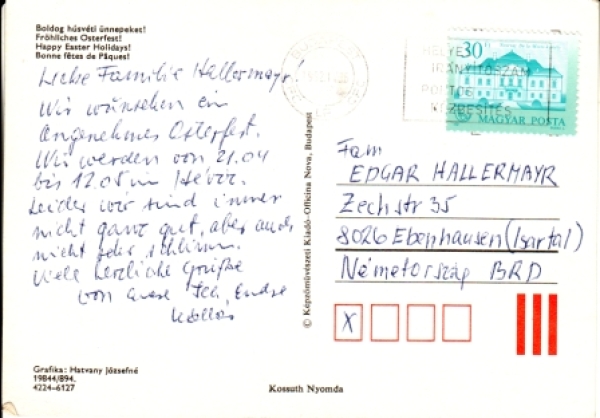 Boldog húsvéti ünnepeket!
Fröhliches Osterfest!
Happy Easter Holidays!
Bonne fêtes de Pâques!
Liebe Familie Hallermayr!
Wir wünschen ein
angenehmes Osterfest.
Wir werden von 21.04
bis 12.05 in Hévíz.
Leider wir sind immer
nicht ganz gut, aber auch
nicht sehr schlimm.
Viele herzliche Grüße
von
Kollos
Grafika: Hatvany Józsefné
19844/894.
4224-6127
Kossuth Nyomda
© Képzőművészeti Kiadó-Officina Nova, Budapest
HELYES
IRÁNYÍTÓSZÁM
PONTOS
KÉZBESÍTÉS
30 Ft
MAGYAR POSTA
Fam
EDGAR HALLERMAYR
Zechstr 35
8026 Ebenhausen (Isartal)
Németország BRD
X